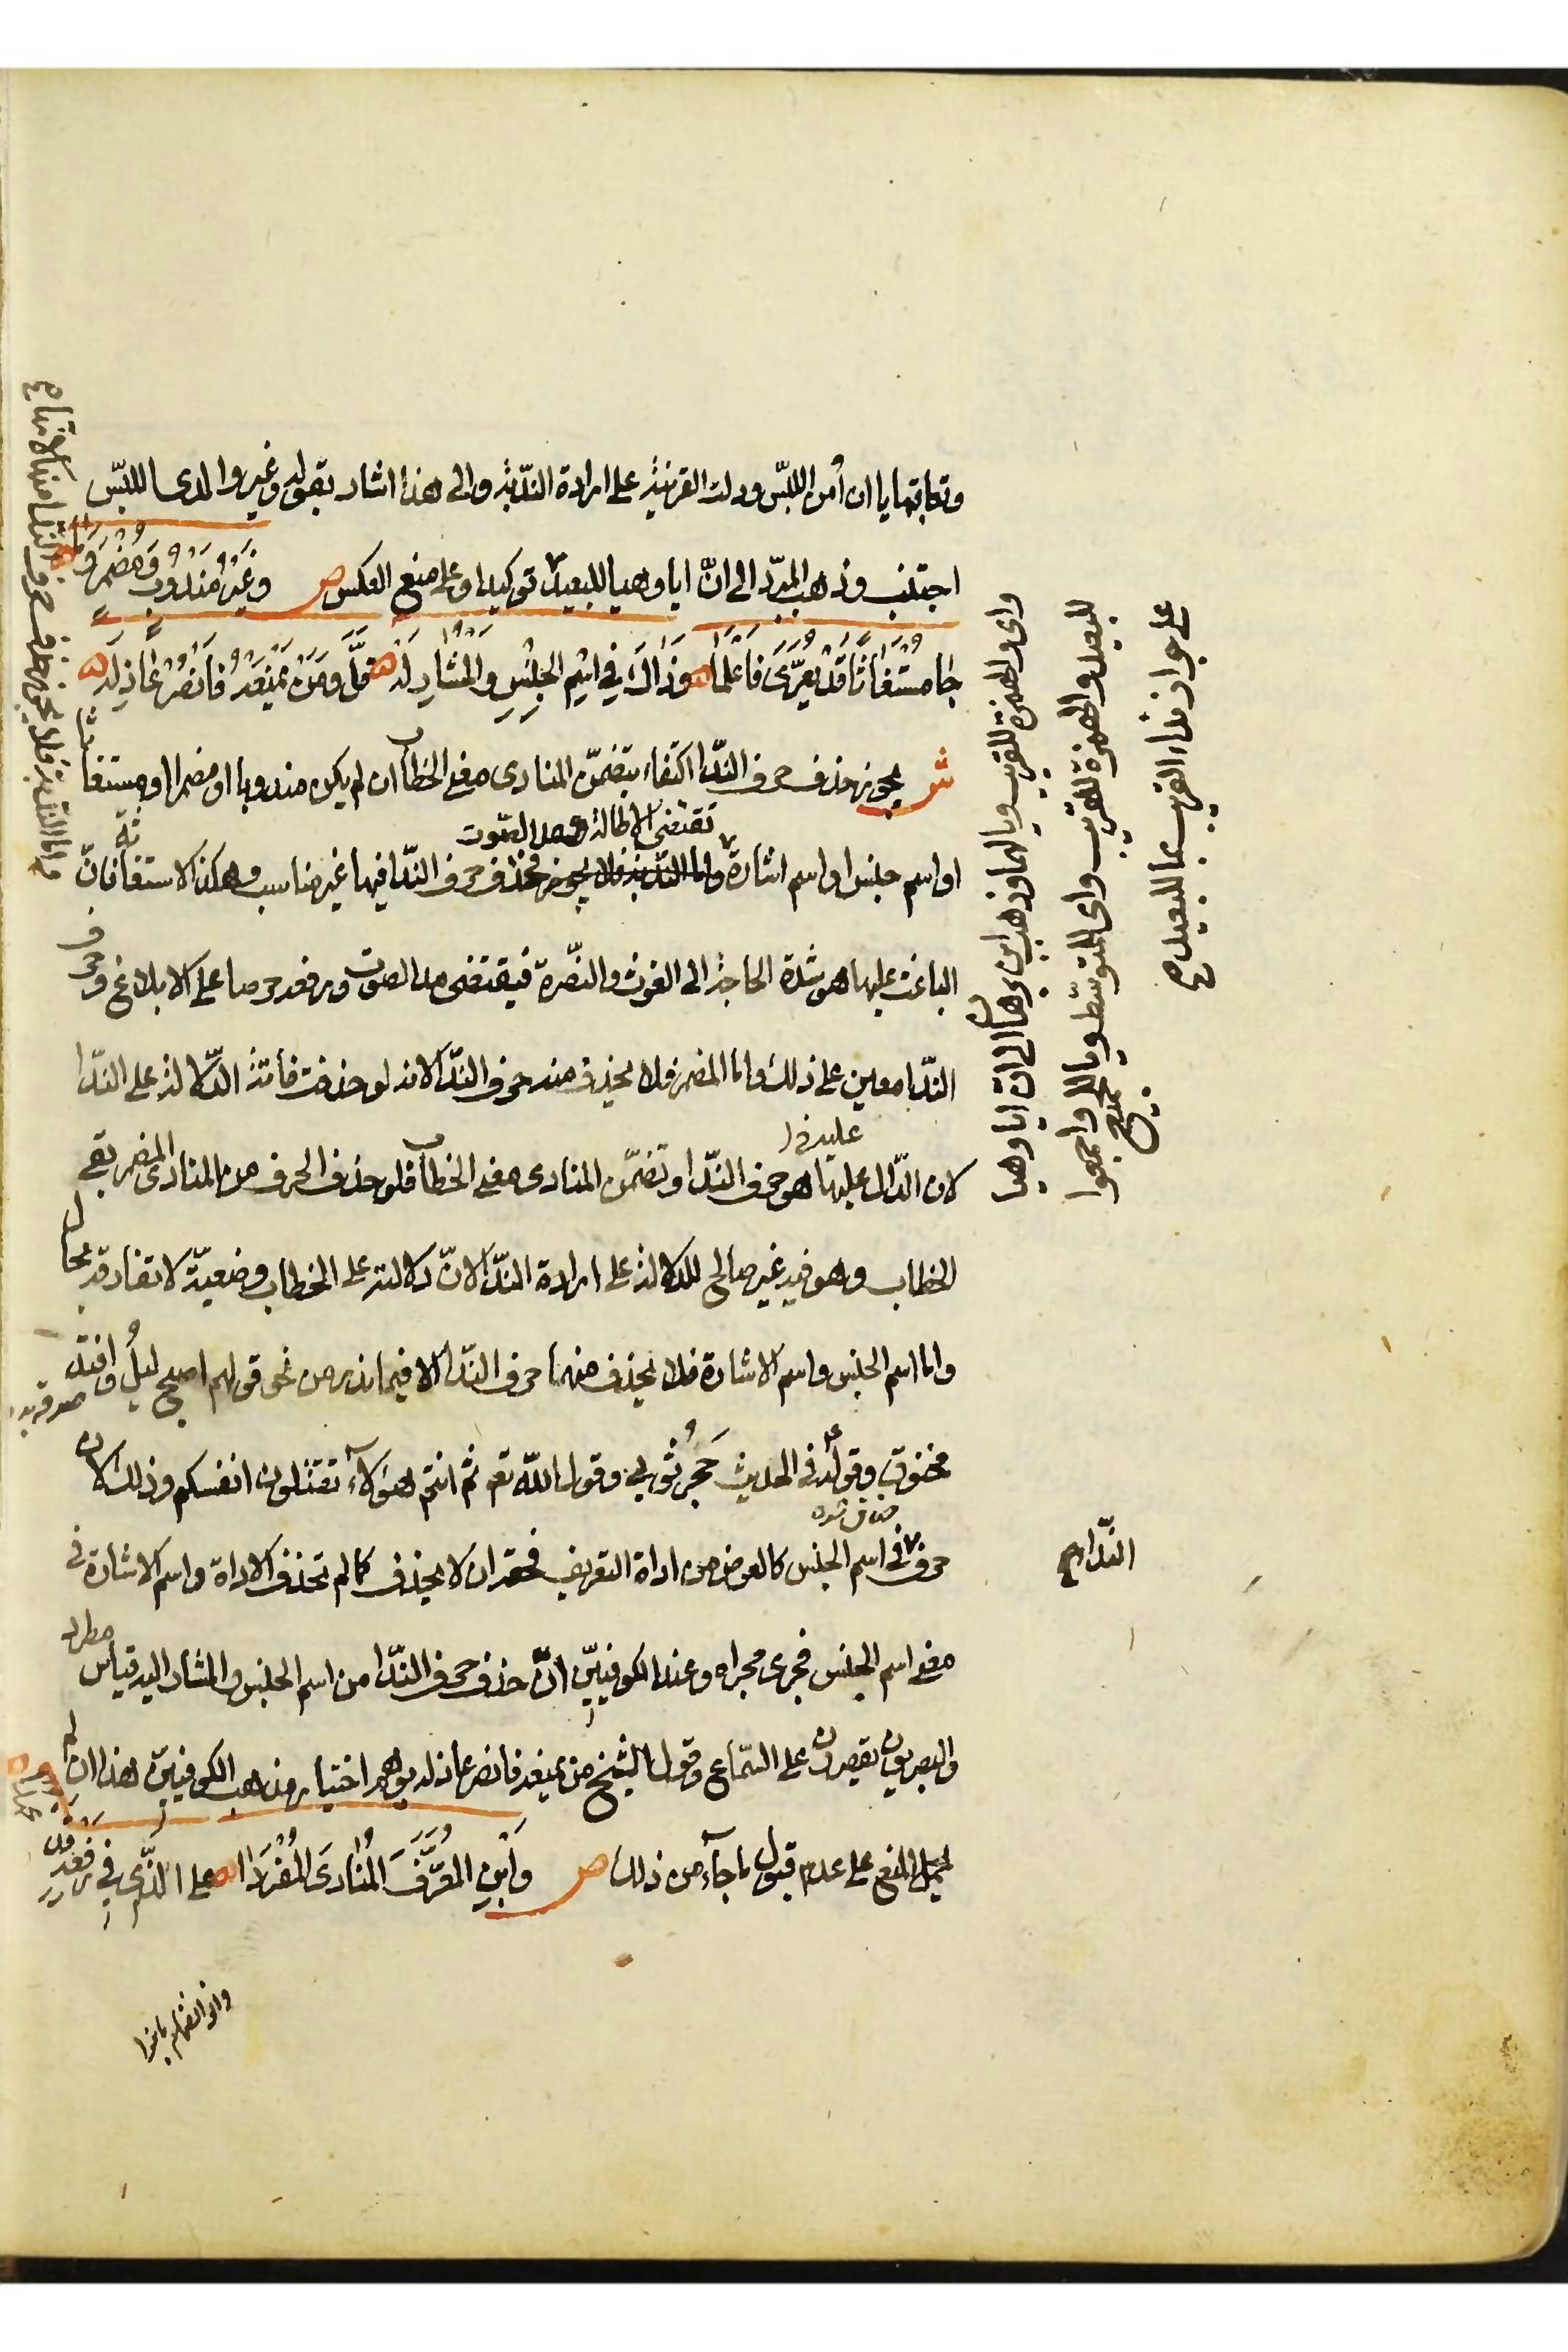 وتعاقبها يا ان أمن اللبس ودلت القرينة على ارادة الندبة والى هذا اشار بقوله وغير وا لدى اللبس
اجتنب وذهب المبرد الى انّ ايا وهيا للبعيد توكيدا وعلى منع العكس ص وَغَيْرُ مَنْدُوبٍ وَمُضْمَرٍ وَمَا
جَا مُسْتَغَاثًا قَدْ يُعَرَّى فَاعْلَمَا وَذَاكَ فِي اسْمِ الجِنْسِ وَالمُشَارِ لَهْ قَلَّ وَمَنْ يَمْنَعْهُ فَانْصُرْ عَاذِلَهْ
ش يجوز حذف حرف النّدا اكتفاء بتضمّن المنادى معنى الخطاب ان لم يكن مندوبا او مضمرا او مستغاثا
او اسم جنس او اسم اشارة واما الندبة فلا يجوز فحذف حرف النّدا فيها غير مناسب وهكذا الاستغاثة فانّ
تقتضى الاطالة ومد الصّوت
الباعث عليها هو شدة الحاجة الى الغوث والنصّرة فيقتضى مد الصوت ورفعه حرصا على الابلاغ وحرف
النّدا معين على ذلك واما المضمر فلا يحذف منه حرف النّدا لانه لو حذفت فأتته الدّلالة على النّدا
لان الدّال عليها هو حرف النّدا وتضمّن المنادى معنى الخطاب فلو حذف الحرف من المنادى المضمر بقى
عليه
الخطاب وهو فيه غير صالح للدلالة على ارادة النّدا لانّ دلالته على الخطاب وضعيّة لا تفارقه بحال
واما اسم الجنس واسم الاشارة فلا يحذف منهما حرف النّدا الا فيما ندر من نحو قولهم اصبح ليلُ وافتد
مخنوق وقوله فى الحديث حَجَرُ ثوبى وقول الله تع ثم انتم هؤلآء تقتلون انفسكم وذلك لان
حرف فى اسم الجنس كالعوض من اداة التعريف فحقه ان لا يحذف كما لم تحذف الاداة واسم الاشارة فى
معنى اسم الجنس فجرى مجراه وعند الكوفييّن انّ حذف حرف النّدا من اسم الجنس والمشار اليه قياس مطرد
والبصريون يقصرون على السّماع وقول الشيخ من يمنعه فانصر عاذله يوهم اختيار مذهب الكوفييّن هذا ان لم
يحمل المنع على عدم قبول ما جآء من ذلك ص وَابْنِ المُعَرَّفَ المُنَادَى المُفْرَدَا على الّذي فِي رَفْعِهِ
واى والهمزة للقريب ويا لهما وذهب ابن برهان الى ان ايا وهيا
للبعيد والهمزة للقريب واى للمتوسّط ويا للجميع واجمعوا
على جواز نداء القريب بما للبعيد
النّدا صح